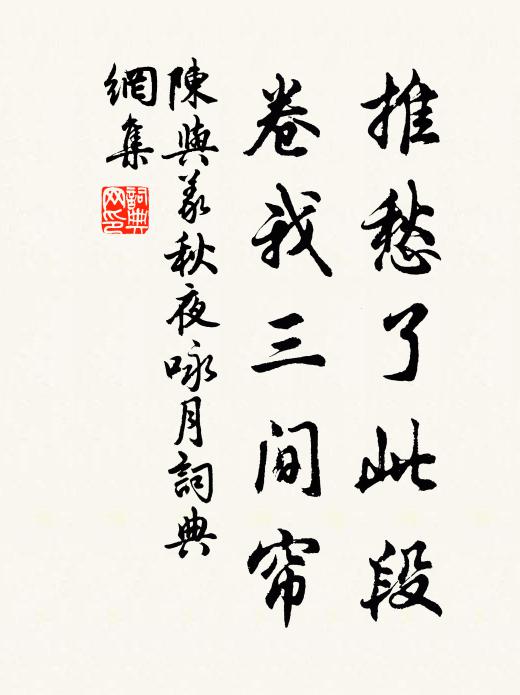 推愁了此段
卷我三间帘
陳與義秋夜咏月詞典
網集
詞典
网印